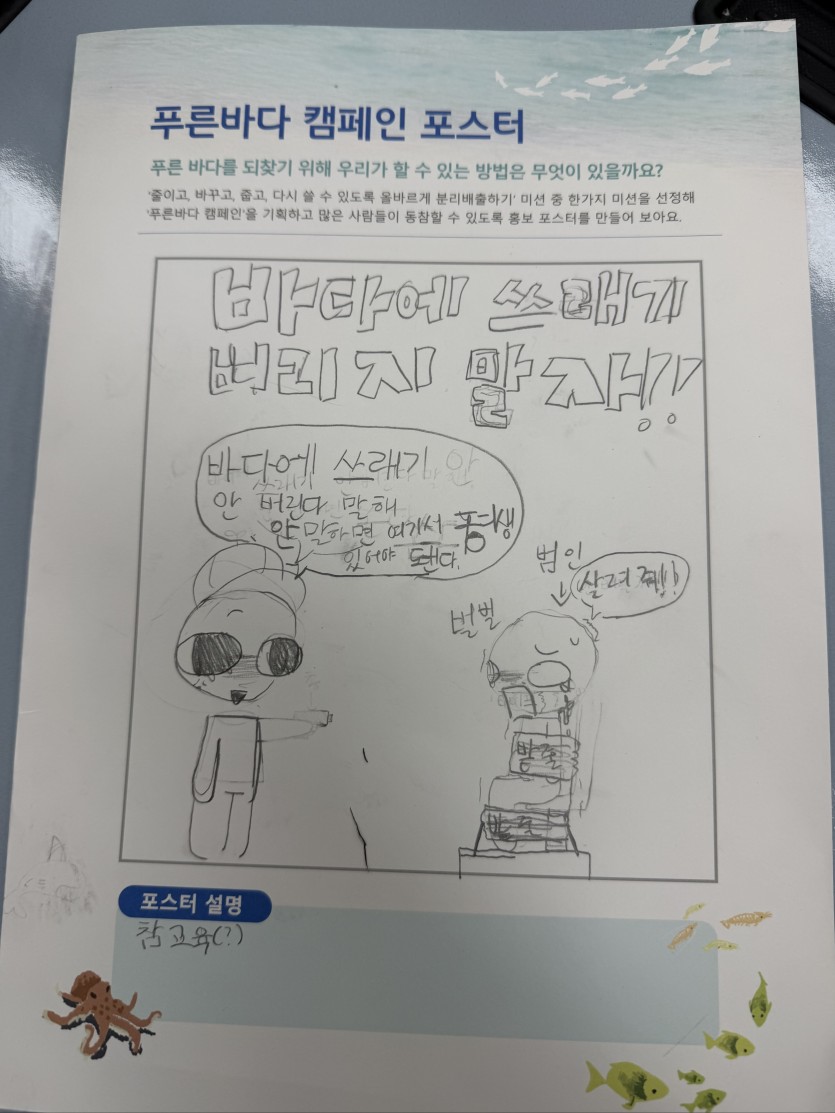 푸른바다 캠페인 포스터
푸른 바다를 되찾기 위해 우리가 할 수 있는 방법은 무엇이 있을까요?
'줄이고, 바꾸고, 줍고, 다시 쓸 수 있도록 올바르게 분리배출하기' 미션 중 한가지 미션을 선정해
'푸른바다 캠페인'을 기획하고 많은 사람들이 동참할 수 있도록 홍보 포스터를 만들어 보아요.
바다에 쓰래기
버리지 말자!!
바다에 쓰래기
안 버린다 말해
안 말하면 여기서 평생
있어야 된다.
범인
살려줘!!
벌벌
밧줄
밧줄
포스터 설명
참교육(?)